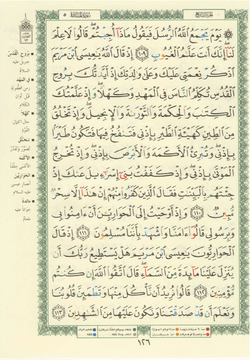 يَوْمَ يَجْمَعُ اللَّهُ الرُّسُلَ فَيَقُولُ مَاذَا أُجِبْتُمْ قَالُوا لَا عِلْمَ
لَنَا إِنَّكَ أَنتَ عَلَّامُ الْغُيُوبِ ١٠٩ إِذْ قَالَ اللَّهُ يَا عِيسَى ابْنَ مَرْيَمَ
اذْكُرْ نِعْمَتِي عَلَيْكَ وَعَلَى وَالِدَتِكَ إِذْ أَيَّدتُّكَ بِرُوحِ
الْقُدُسِ تُكَلِّمُ النَّاسَ فِي الْمَهْدِ وَكَهْلًا وَإِذْ عَلَّمْتُكَ
الْكِتَابَ وَالْحِكْمَةَ وَالتَّوْرَاةَ وَالْإِنجِيلَ وَإِذْ تَخْلُقُ
مِنَ الطِّينِ كَهَيْئَةِ الطَّيْرِ بِإِذْنِي فَتَنفُخُ فِيهَا فَتَكُونُ
طَيْرًا بِإِذْنِي وَتُبْرِئُ الْأَكْمَهَ وَالْأَبْرَصَ بِإِذْنِي وَإِذْ تُخْرِجُ
الْمَوْتَى بِإِذْنِي وَإِذْ كَفَفْتُ بَنِي إِسْرَائِيلَ عَنكَ إِذْ
جِئْتَهُم بِالْبَيِّنَاتِ فَقَالَ الَّذِينَ كَفَرُوا مِنْهُمْ إِنْ هَٰذَا إِلَّا سِحْرٌ
مُّبِينٌ ١١٠ وَإِذْ أَوْحَيْتُ إِلَى الْحَوَارِيِّينَ أَنْ آمِنُوا بِي
وَبِرَسُولِي قَالُوا آمَنَّا وَاشْهَدْ بِأَنَّنَا مُسْلِمُونَ ١١١ إِذْ قَالَ
الْحَوَارِيُّونَ يَا عِيسَى ابْنَ مَرْيَمَ هَلْ يَسْتَطِيعُ رَبُّكَ أَن
يُنَزِّلَ عَلَيْنَا مَائِدَةً مِّنَ السَّمَاءِ قَالَ اتَّقُوا اللَّهَ إِن كُنتُم
مُّؤْمِنِينَ ١١٢ قَالُوا نُرِيدُ أَن نَّأْكُلَ مِنْهَا وَتَطْمَئِنَّ قُلُوبُنَا
وَنَعْلَمَ أَن قَدْ صَدَقْتَنَا وَنَكُونَ عَلَيْهَا مِنَ الشَّاهِدِينَ ١١٣
١٢٦